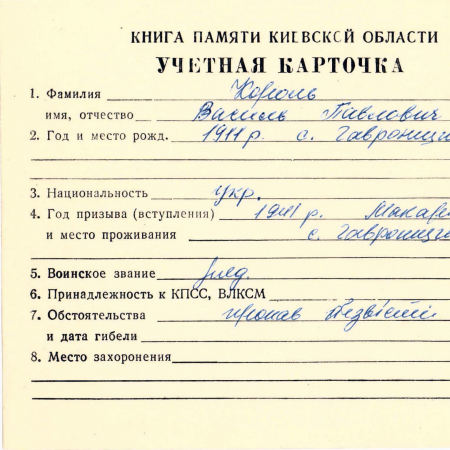 КНИГА ПАМЯТИ КИЕВСКСЙ ОБЛАСТИ
УЧЕТНАЯ КАРТОЧКА
1. Фамилия Король
имя, отчество Василь Павлович
2. Год и место рожд. 1911 р. с.
3. Национальность укр.
4. Год призыва (вступления) 1941 р.
и место проживания с.
5. Воинское звание
6. Принадлежность к КПСС, ВЛКСМ
7. Обстоятельства пропав безвісти
и дата гибели
8. Место захоронения